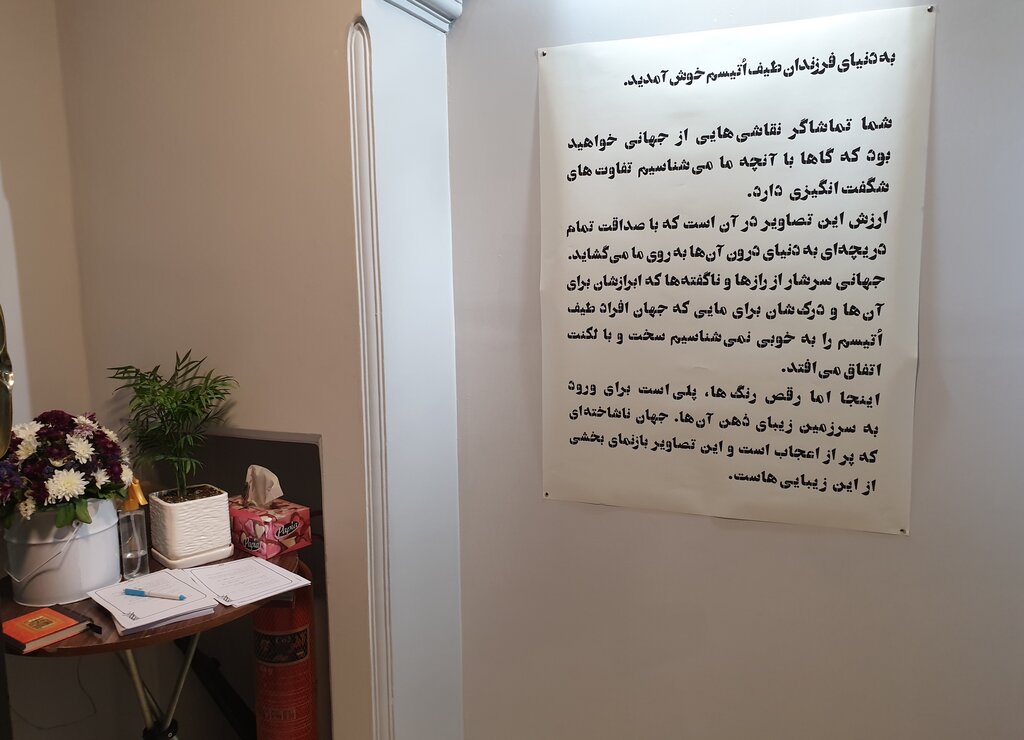 به دنیای فرزندان طیف اُتیسم خوش آمدید.
شما تماشاگر نقاشی‌هایی از جهانی خواهید
بود که گاها با آنچه ما می‌شناسیم تفاوت‌های
شگفت‌انگیزی دارد.
ارزش این تصاویر در آن است که با صداقت تمام
دریچه‌ای به دنیای درون آن‌ها به روی ما می‌گشاید.
جهانی سرشار از رازها و ناگفته‌ها که ابرازشان برای
آن‌ها و درک‌شان برای مایی که جهان افراد طیف
اُتیسم را به خوبی نمی‌شناسیم سخت و با لکنت
اتفاق می‌افتد.
اینجا اما رقص رنگ‌ها، پلی است برای ورود
به سرزمین زیبای ذهن آن‌ها. جهان ناشاخته‌ای
که پر از اعجاب است و این تصاویر بازنمای بخشی
از این زیبایی‌هاست.
Papia
Papia
Co2